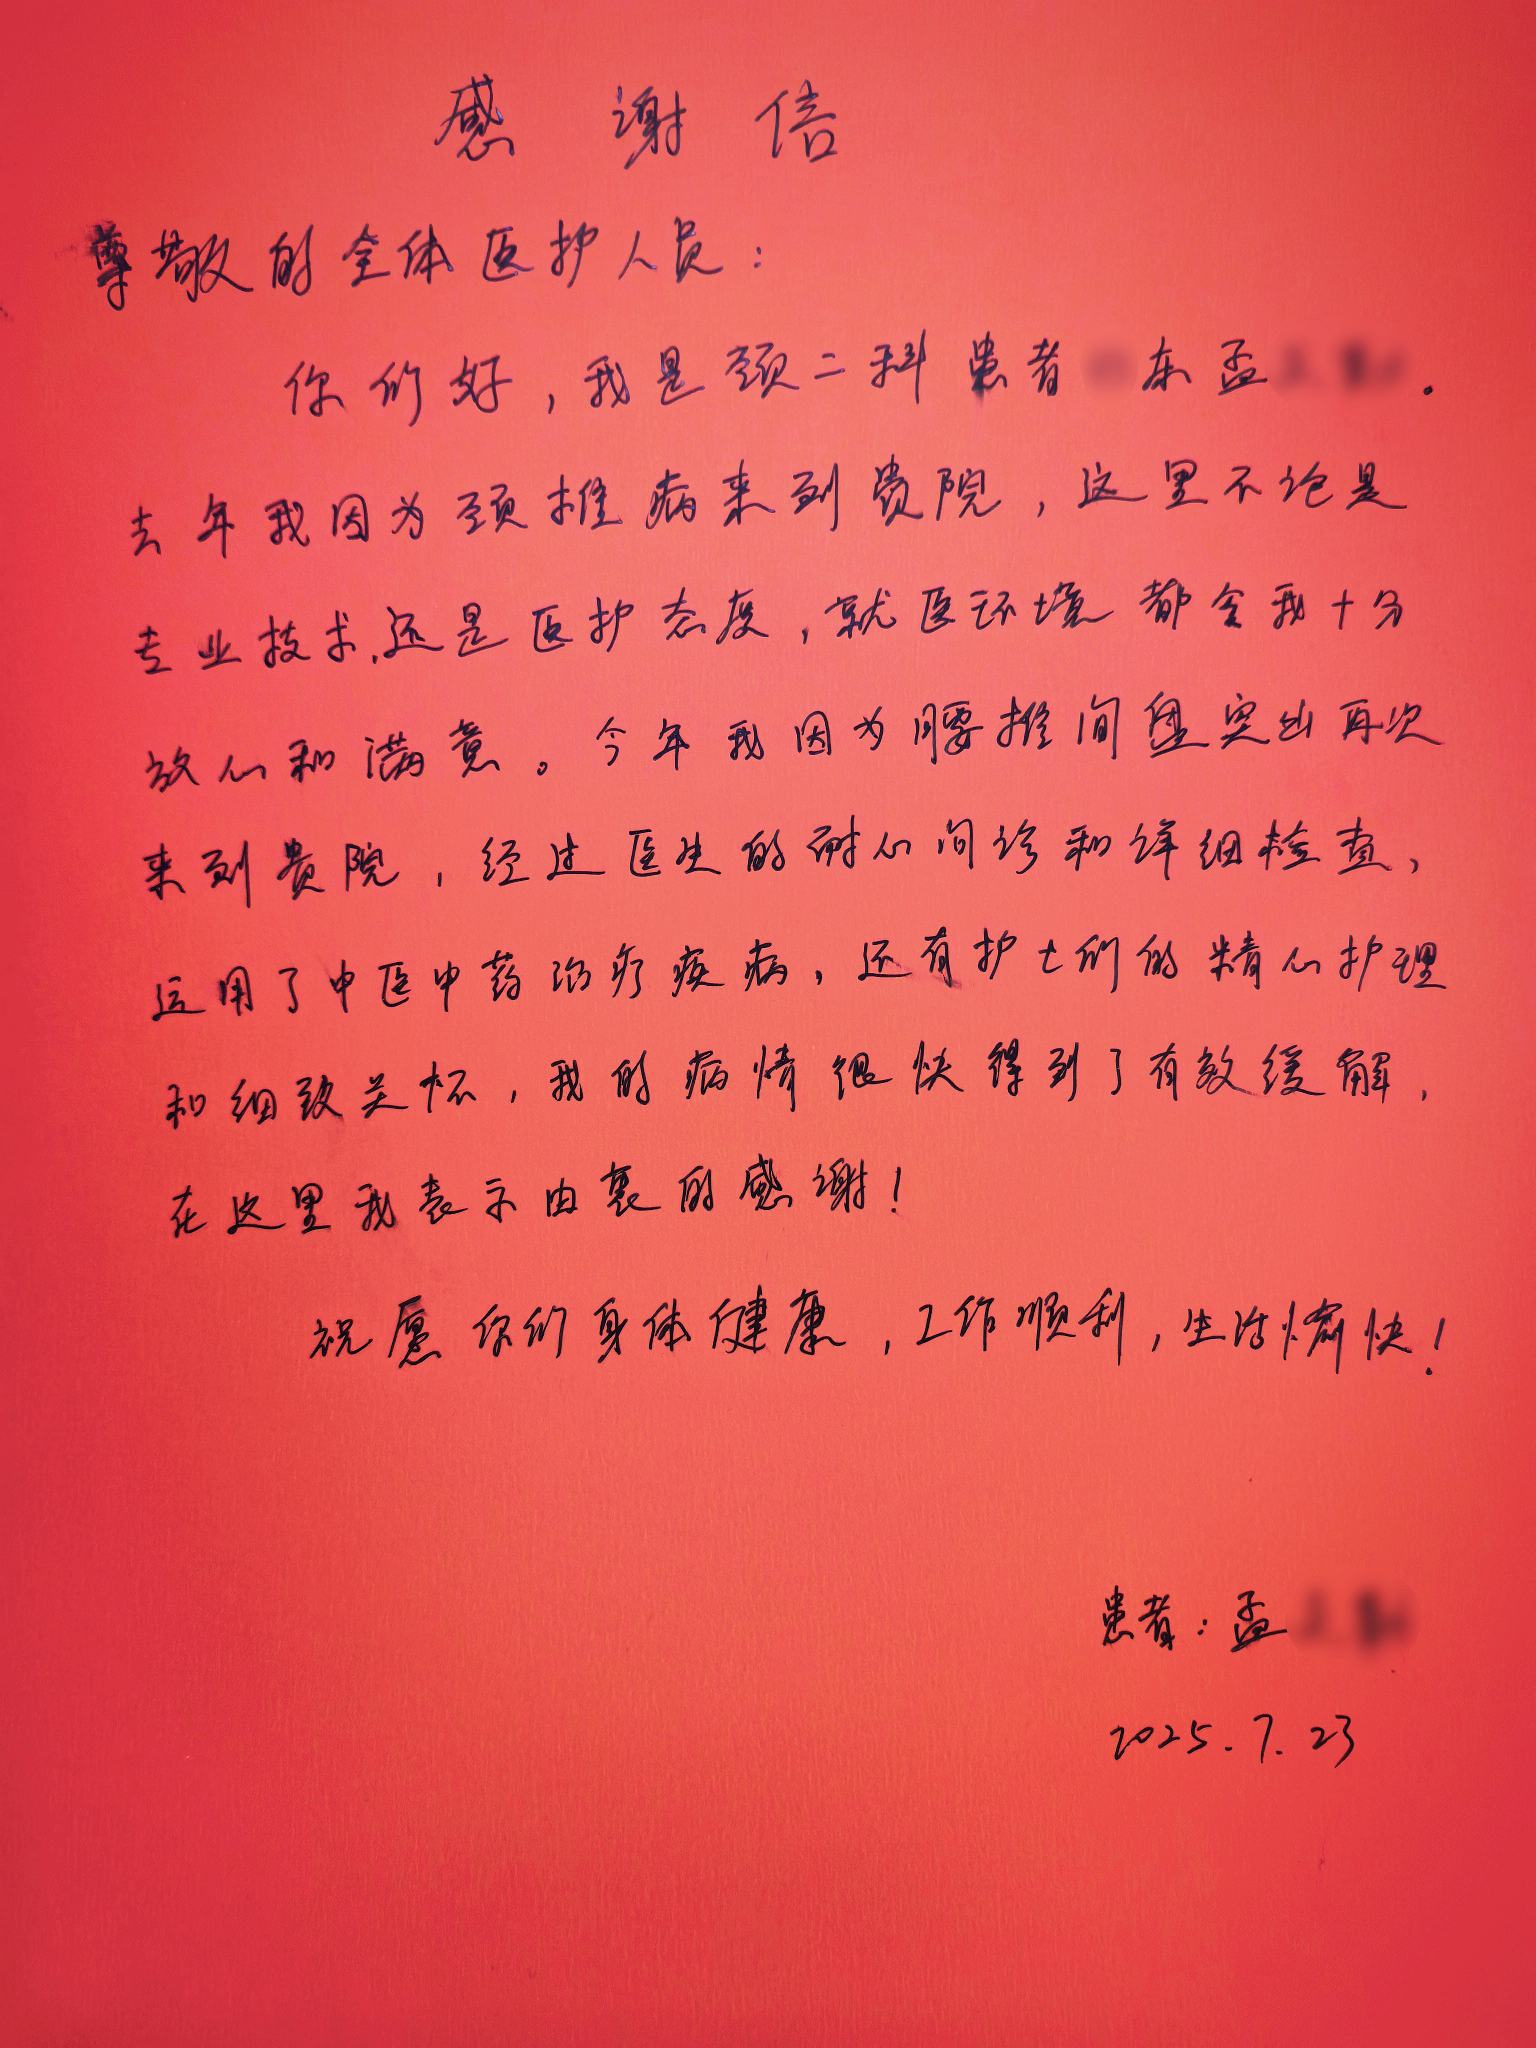 感谢信
尊敬的全体医护人员：
你们好，我是颈二科患者 东孟 .
去年我因为颈椎病来到贵院，这里不论是
专业技术，还是医护态度，就医环境都令我十分
放心和满意。今年我因为腰椎间盘突出再次
来到贵院，经过医生的耐心问诊和详细检查，
运用了中医中药治疗疾病，还有护士们的精心护理
和细致关怀，我的病情很快得到了有效缓解，
在这里我表示由衷的感谢！
祝愿你们身体健康，工作顺利，生活愉快！
患者：孟
2025.7.23